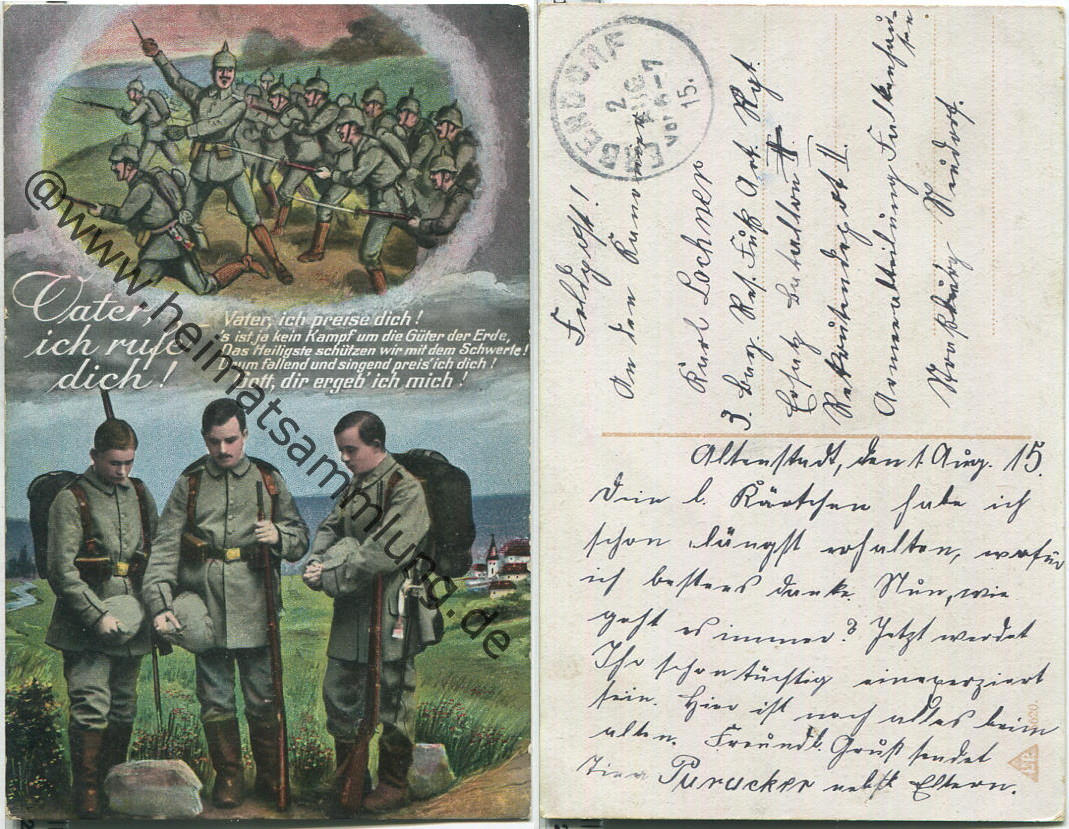 Vater,
ich rufe
dich!
Vater, ich preise dich!
's ist ja kein Kampf um die Güter der Erde,
Das Heiligste schützen wir mit dem Schwerte!
Drum fallend und singend preis' ich dich!
Gott, dir ergeb' ich mich!
@www.heimatsammlung.de
ERBENDORF
2
AUG
Vor 6-7
15.
Feldpost!
An den Kanonier
Karl Lochner
3. Bay. Res. Fuß Art. Rgt.
Ersatz Bataillon II
Rekrutendepot II.
Armeeabteilung Falkenhausen
Straßburg Neudorf.
Altenstadt, den 1. Aug. 15.
Dein l. Kärtchen habe ich
schon längst erhalten, wofür
ich bestens danke. Nun, wie
geht es immer? Jetzt werdet
Ihr schon tüchtig einexerziert
sein. Hier ist noch alles beim
alten. Freundl. Gruß sendet
Purucker nebst Eltern.